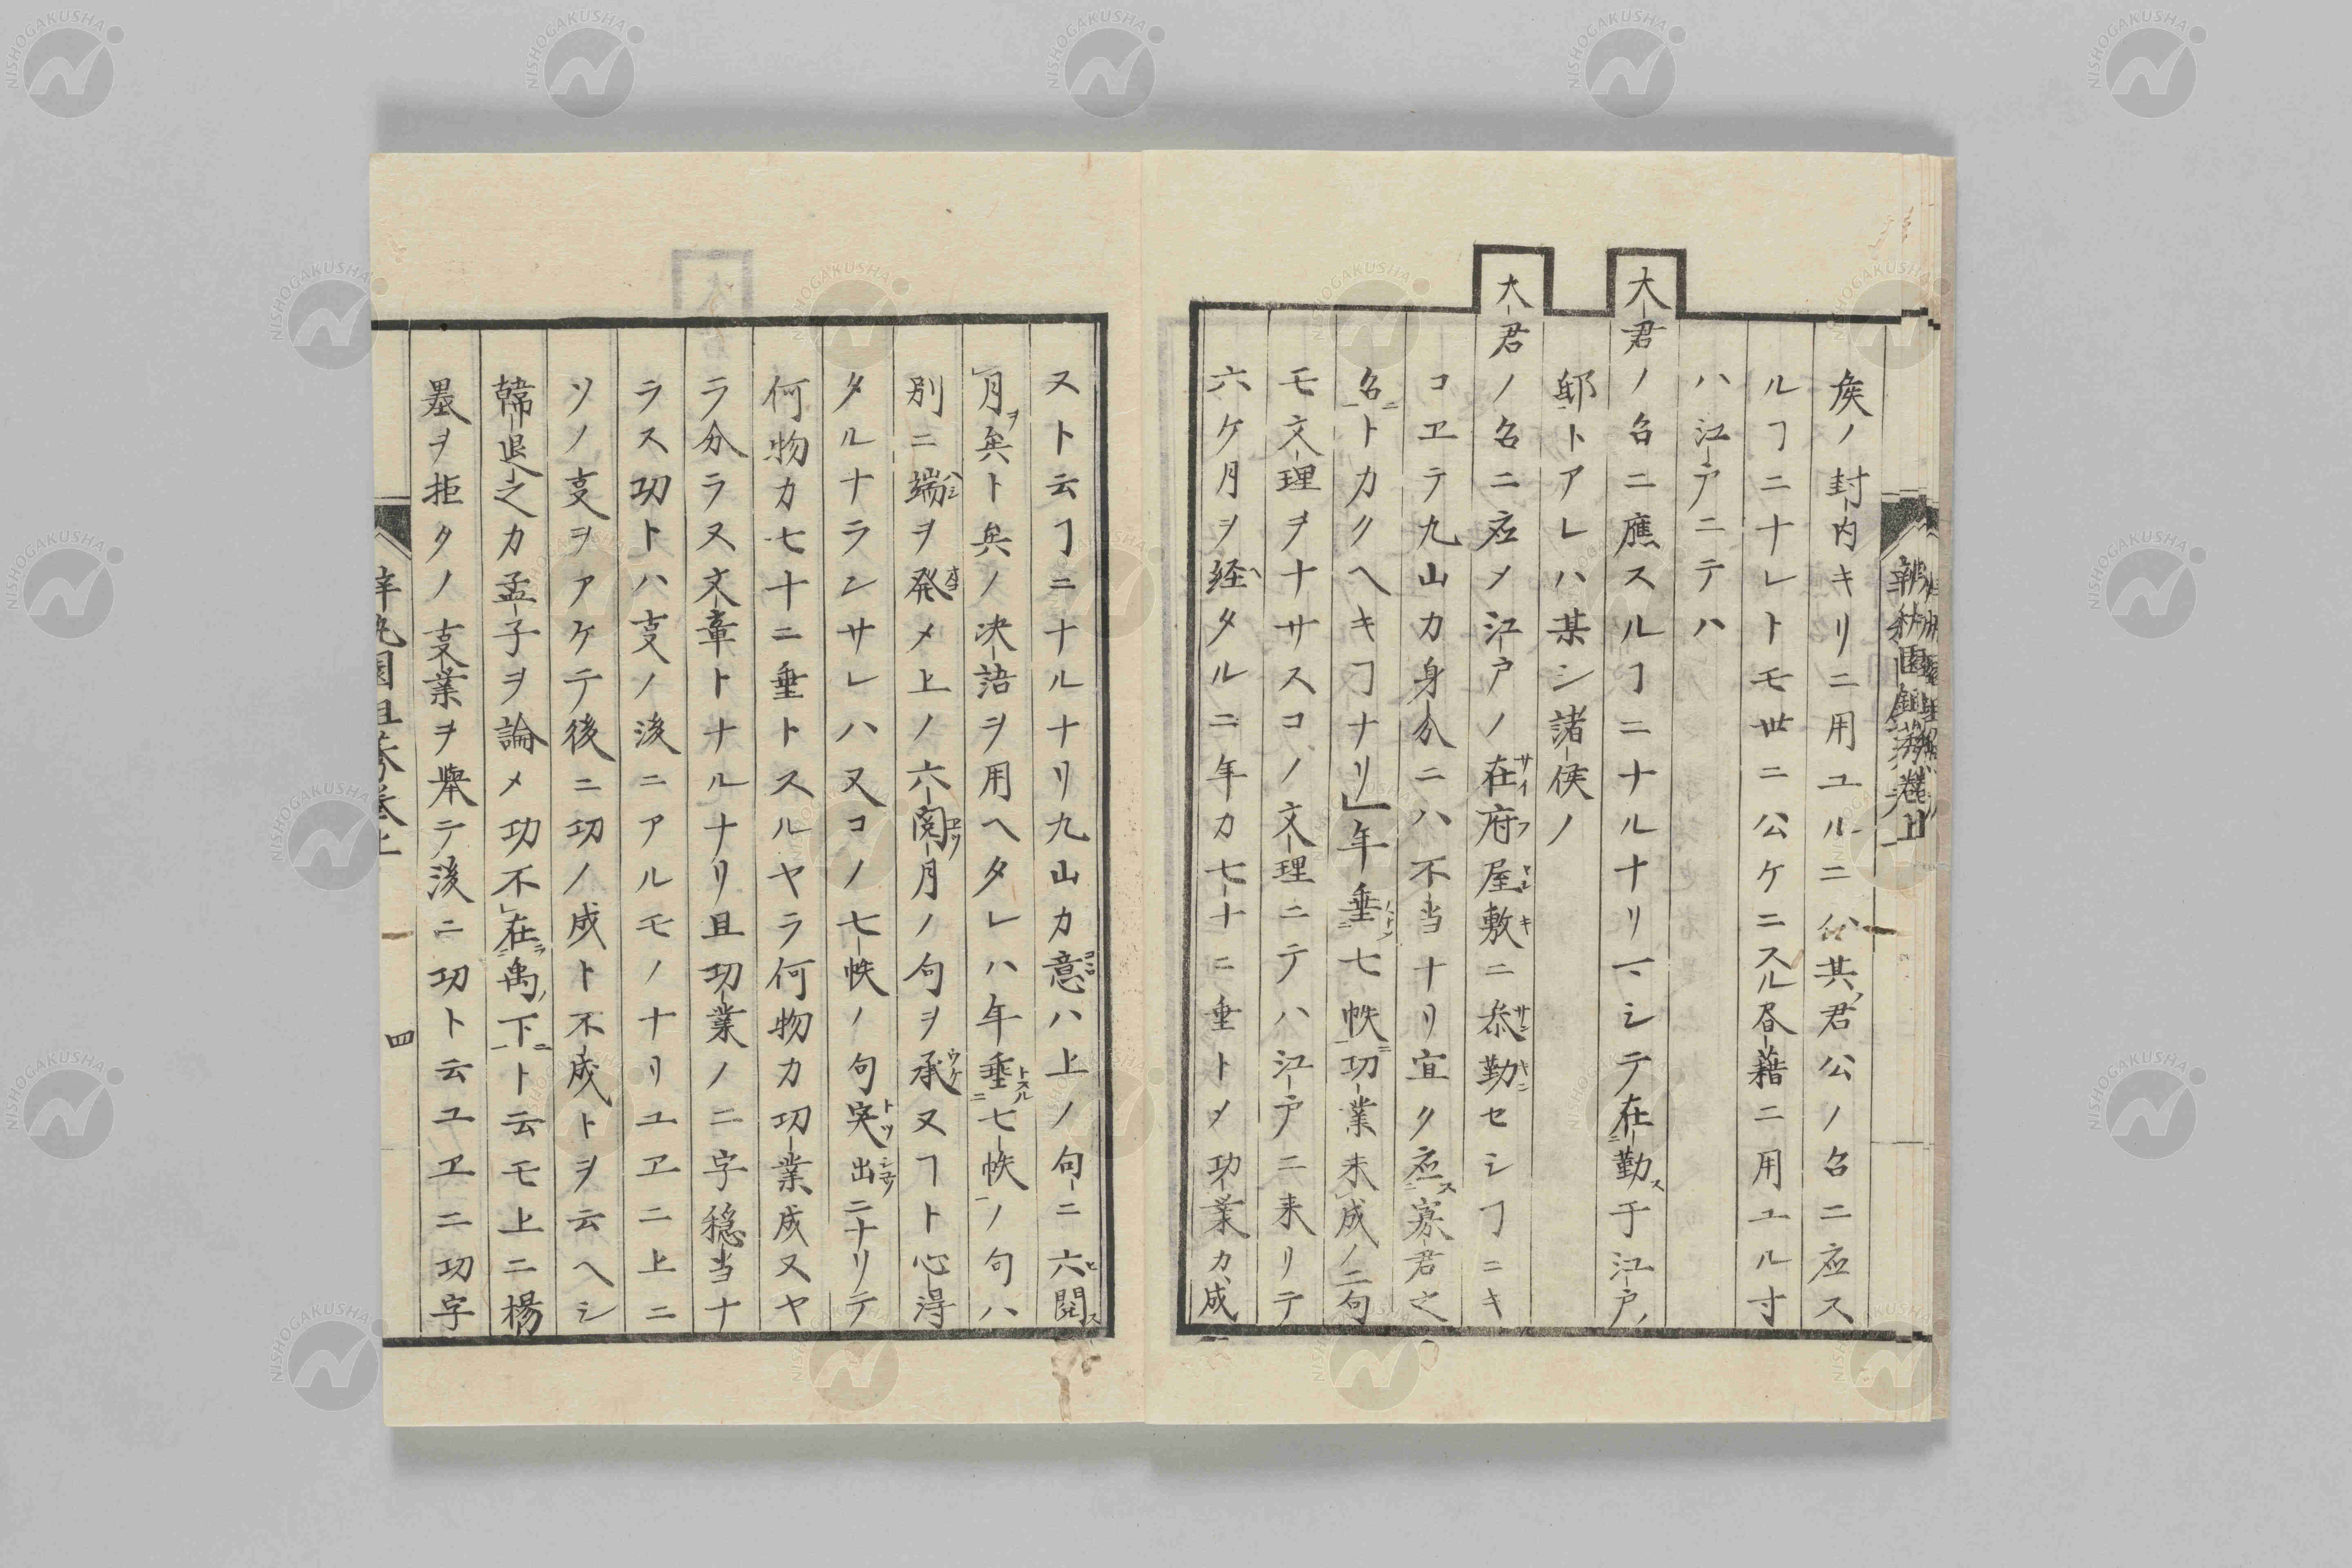 侯ノ封内キリニ用ユルニ公其君公ノ名ニ応ス
ルヿニナレトモ世ニ公ケニスル昏藉ニ用ユル寸
ハ江戸ニテハ
大君ノ名ニ應スルヿニナルナリ一シテ在勤ス于江戸ノ
邸トアレハ某シ諸侯ノ
大君ノ名ニ応メ江戸ノ在府屋敷ニ参勤セシヿニキ
コヱテ九山カ身分ニハ不当ナリ宜ク応ス寡君之
名トカクヘキヿナリ」年垂七帙功業未成ノ二句
モ文理ヲナサスコノ文理ニテハ江戸ニ来リテ
六ケ月ヲ経タルニ年カ七十ニ垂トメ功業カ成
スト云ヿニナルナリ九山カ意ハ上ノ句ニ六閲ス
月ヲ矣ト矣ノ决語ヲ用ヘタレハ年垂七帙ノ句ハ
別ニ端ヲ発メ上ノ六閲月ノ句ヲ承ヌヿト心得
タルナランサレハ又コノ七帙ノ句突出ニナリテ
何物カ七十ニ垂トスルヤラ何物カ功業成ヌヤ
ラ分ラヌ文章トナルナリ且功業ノ二字穏当ナ
ラス功トハ支ノ後ニアルモノナリユヱニ上ニ
ソノ支ヲアケテ後ニ功ノ成ト不成トヲ云ヘシ
韓退之カ孟子ヲ論メ功不在禹ノ下ト云モ上ニ楊
墨ヲ拒タノ支業ヲ挙テ後ニ功ト云ユヱニ功字
四
NISHOGAKUSHA